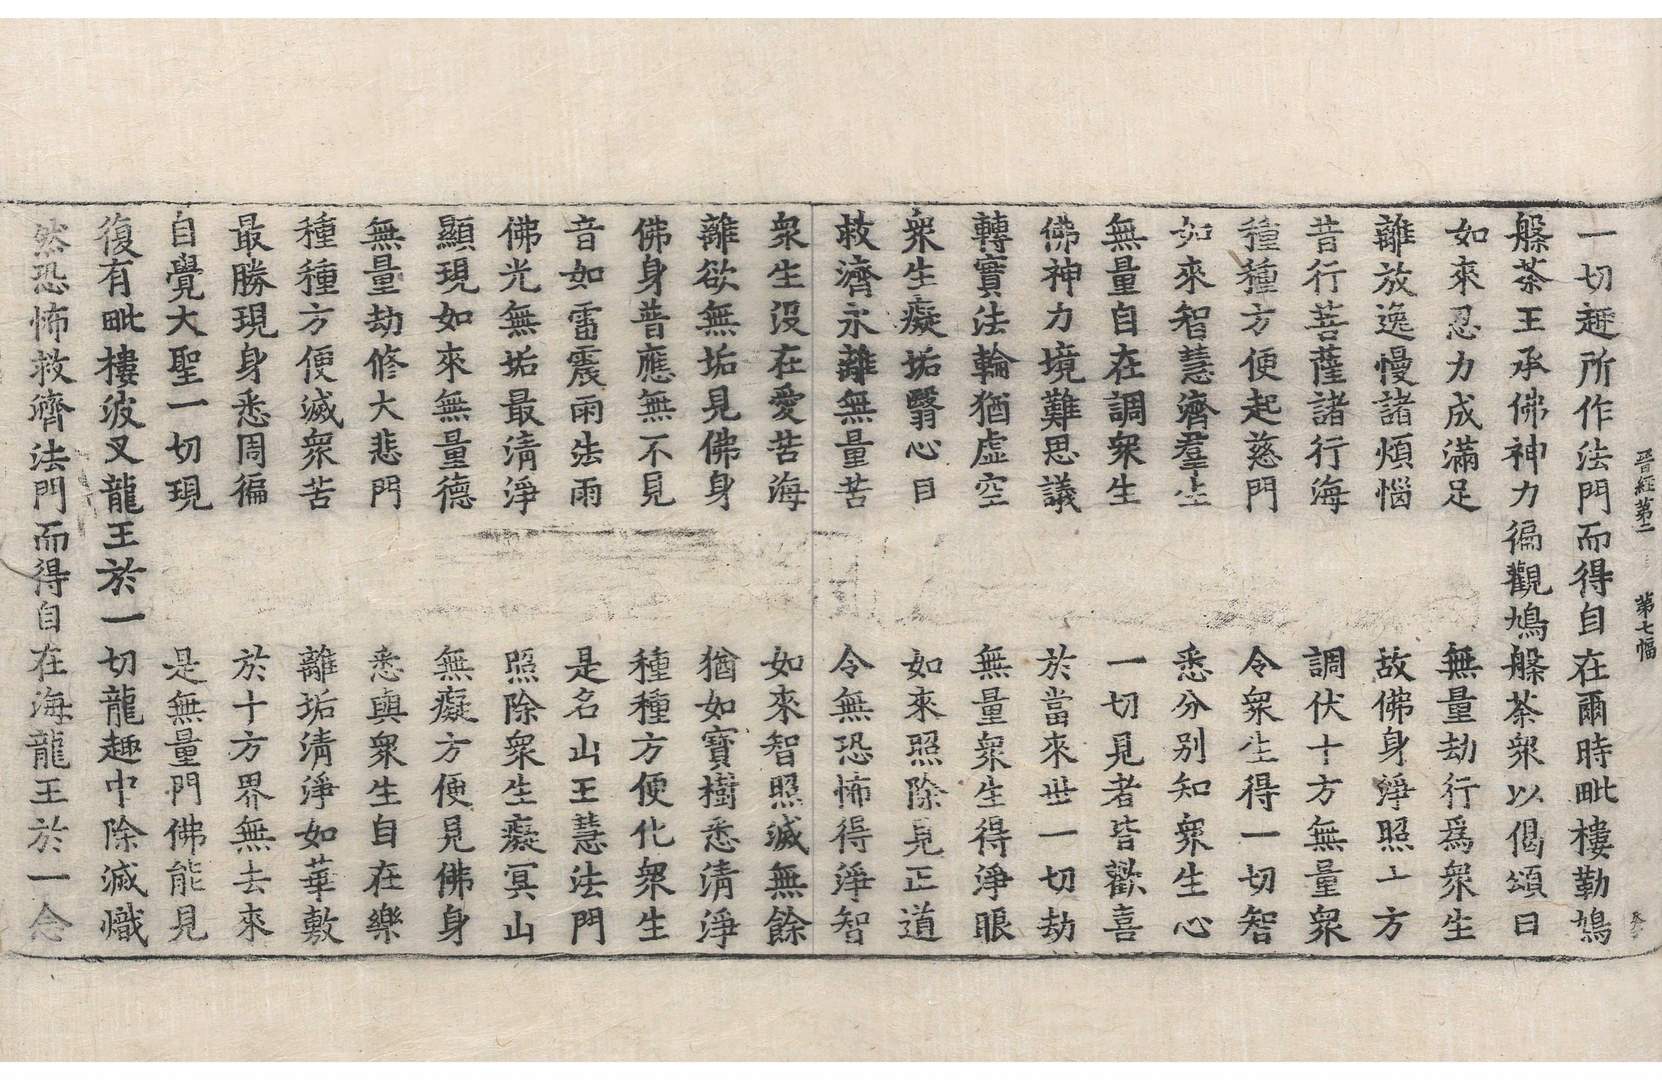 晉經第二 第七幅
一切趣所作法門而得自在爾時毗樓勒鳩
槃荼王承佛神力徧觀鳩槃荼衆以偈頌曰
如來忍力成滿足 無量劫行爲衆生
離放逸慢諸煩惱 故佛身淨照十方
昔行菩薩諸行海 調伏十方無量衆
種種方便起慈門 令衆生得一切智
如來智慧濟羣生 悉分別知衆生心
無量自在調衆生 一切見者皆歡喜
佛神力境難思議 於當來世一切劫
轉寶法輪猶虛空 無量衆生得淨眼
衆生癡垢翳心目 如來照除見正道
救濟永離無量苦 令無恐怖得淨智
衆生没在愛苦海 如來智照滅無餘
離欲無垢見佛身 猶如寶樹悉清淨
佛身普應無不見 種種方便化衆生
音如雷震雨法雨 是名山王慧法門
佛光無垢最清淨 照除衆生癡冥山
顯現如來無量德 無癡方便見佛身
無量劫修大悲門 悉與衆生自在樂
種種方便滅衆苦 離垢清淨如華敷
最勝現身悉周徧 於十方界無去來
自覺大聖一切現 是無量門佛能見
復有毗樓波叉龍王於一切龍趣中除滅熾
然恐怖救濟法門而得自在海龍王於一念